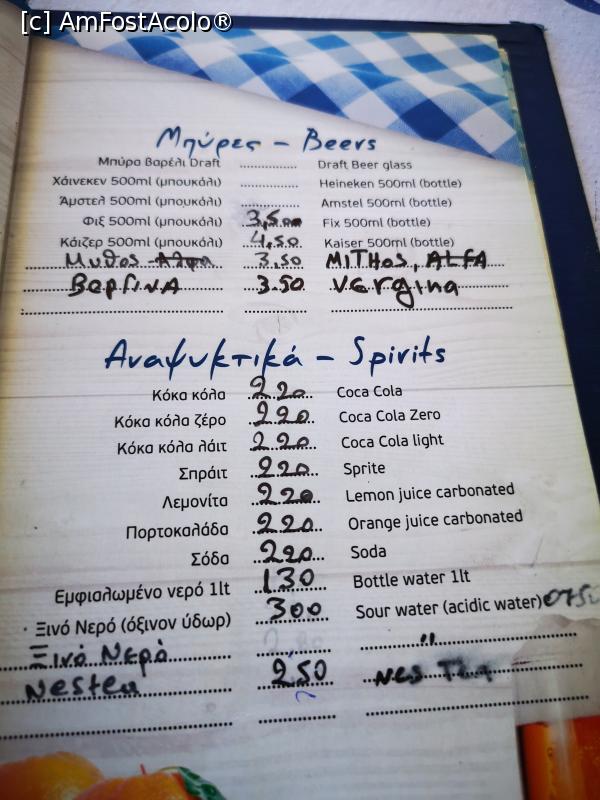 [c] AmFostAcolo®
Μπύρες - Beers
Μπύρα Βαρέλι Draft .............. Draft Beer glass
Χάινεκεν 500ml (μπουκάλι) .............. Heineken 500ml (bottle)
Άμστελ 500ml (μπουκάλι) .............. Amstel 500ml (bottle)
Φιξ 500ml (μπουκάλι) 3,50 Fix 500ml (bottle)
Κάιζερ 500ml (μπουκάλι) 4,50 Kaiser 500ml (bottle)
Μυθος Αλφα 3,50 MITHOS, ALFA
ΒΕΡΓΙΝΑ 3.50 Vergina
Αναψυκτικά - Spirits
Κόκα κόλα 220 Coca Cola
Κόκα κόλα ζέρο 220 Coca Cola Zero
Κόκα κόλα λάιτ 220 Coca Cola light
Σπράιτ 220 Sprite
Λεμονίτα 220 Lemon juice carbonated
Πορτοκαλάδα 220 Orange juice carbonated
Σόδα 220 Soda
Εμφιαλωμένο νερό 1lt 130 Bottle water 1lt
· Ξινό Νερό (όξινον ύδωρ) 300 Sour water (acidic water)
Ξινό Νερό "
Nestea 2,50 Nes Tea